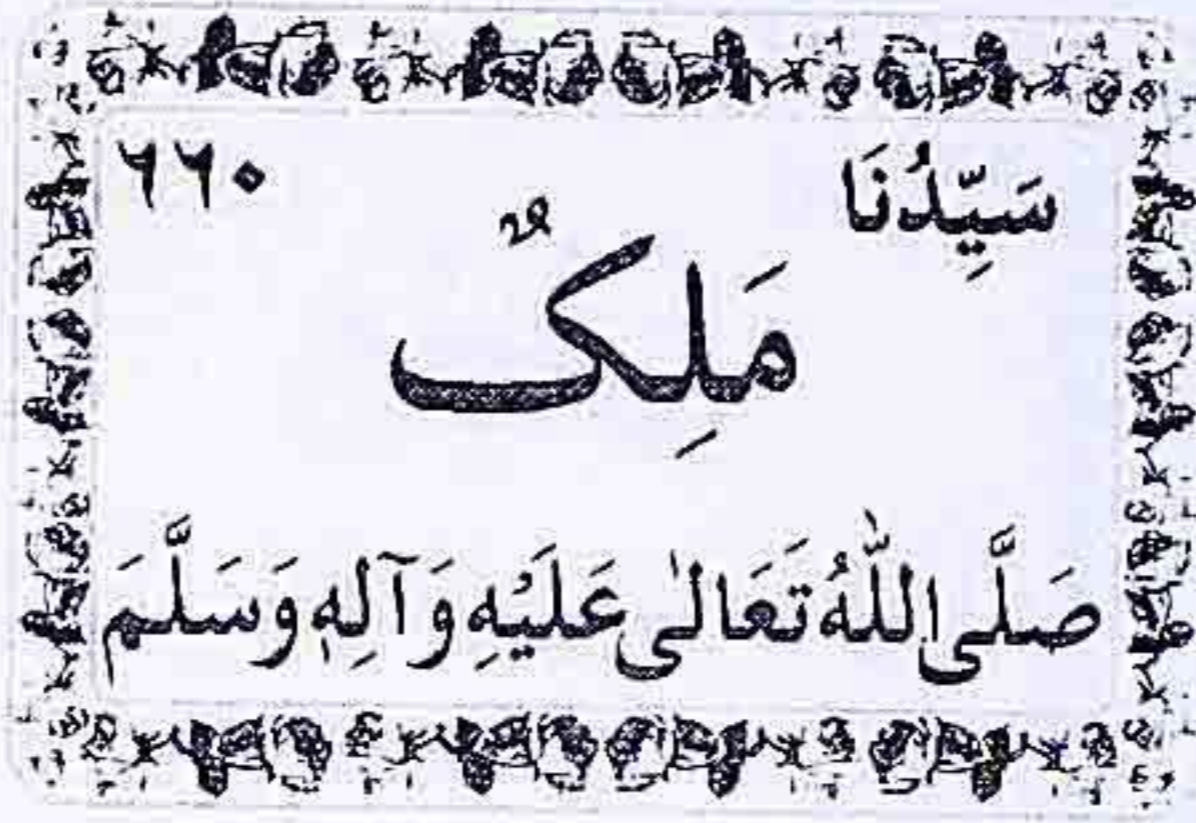 سَيِّدُنَا ٦٦٠
مَلِکٌ
صَلَّى اللّٰهُ تَعَالٰى عَلَيْهِ وَآلِهٖ وَسَلَّمَ